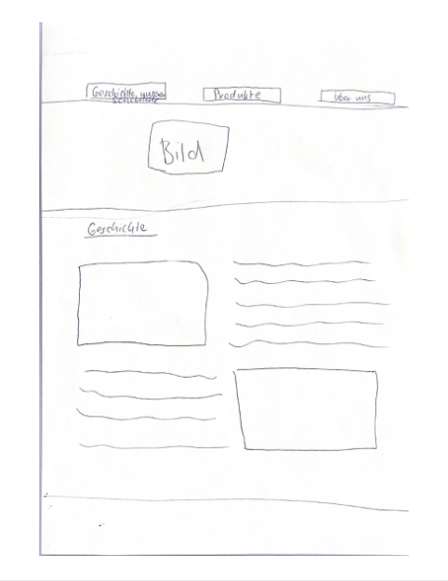 Geschichte, unsere
Produkte
Über uns
Bild
Geschichte